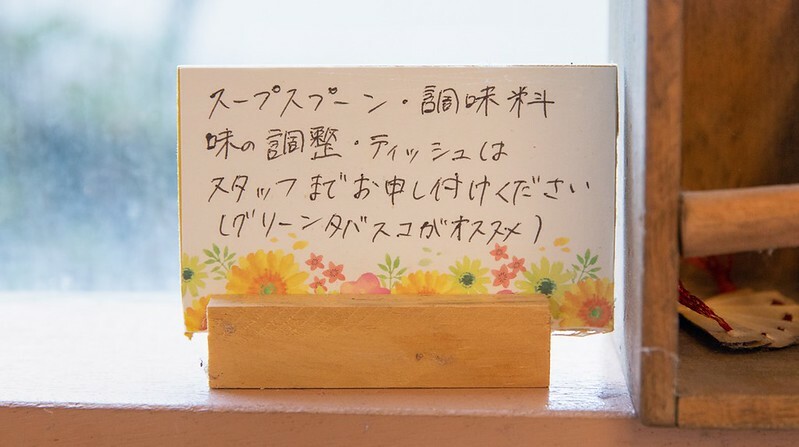 スープスプーン・調味料
味の調整・ティッシュは
スタッフまでお申し付けください
(グリーンタバスコがオススメ)